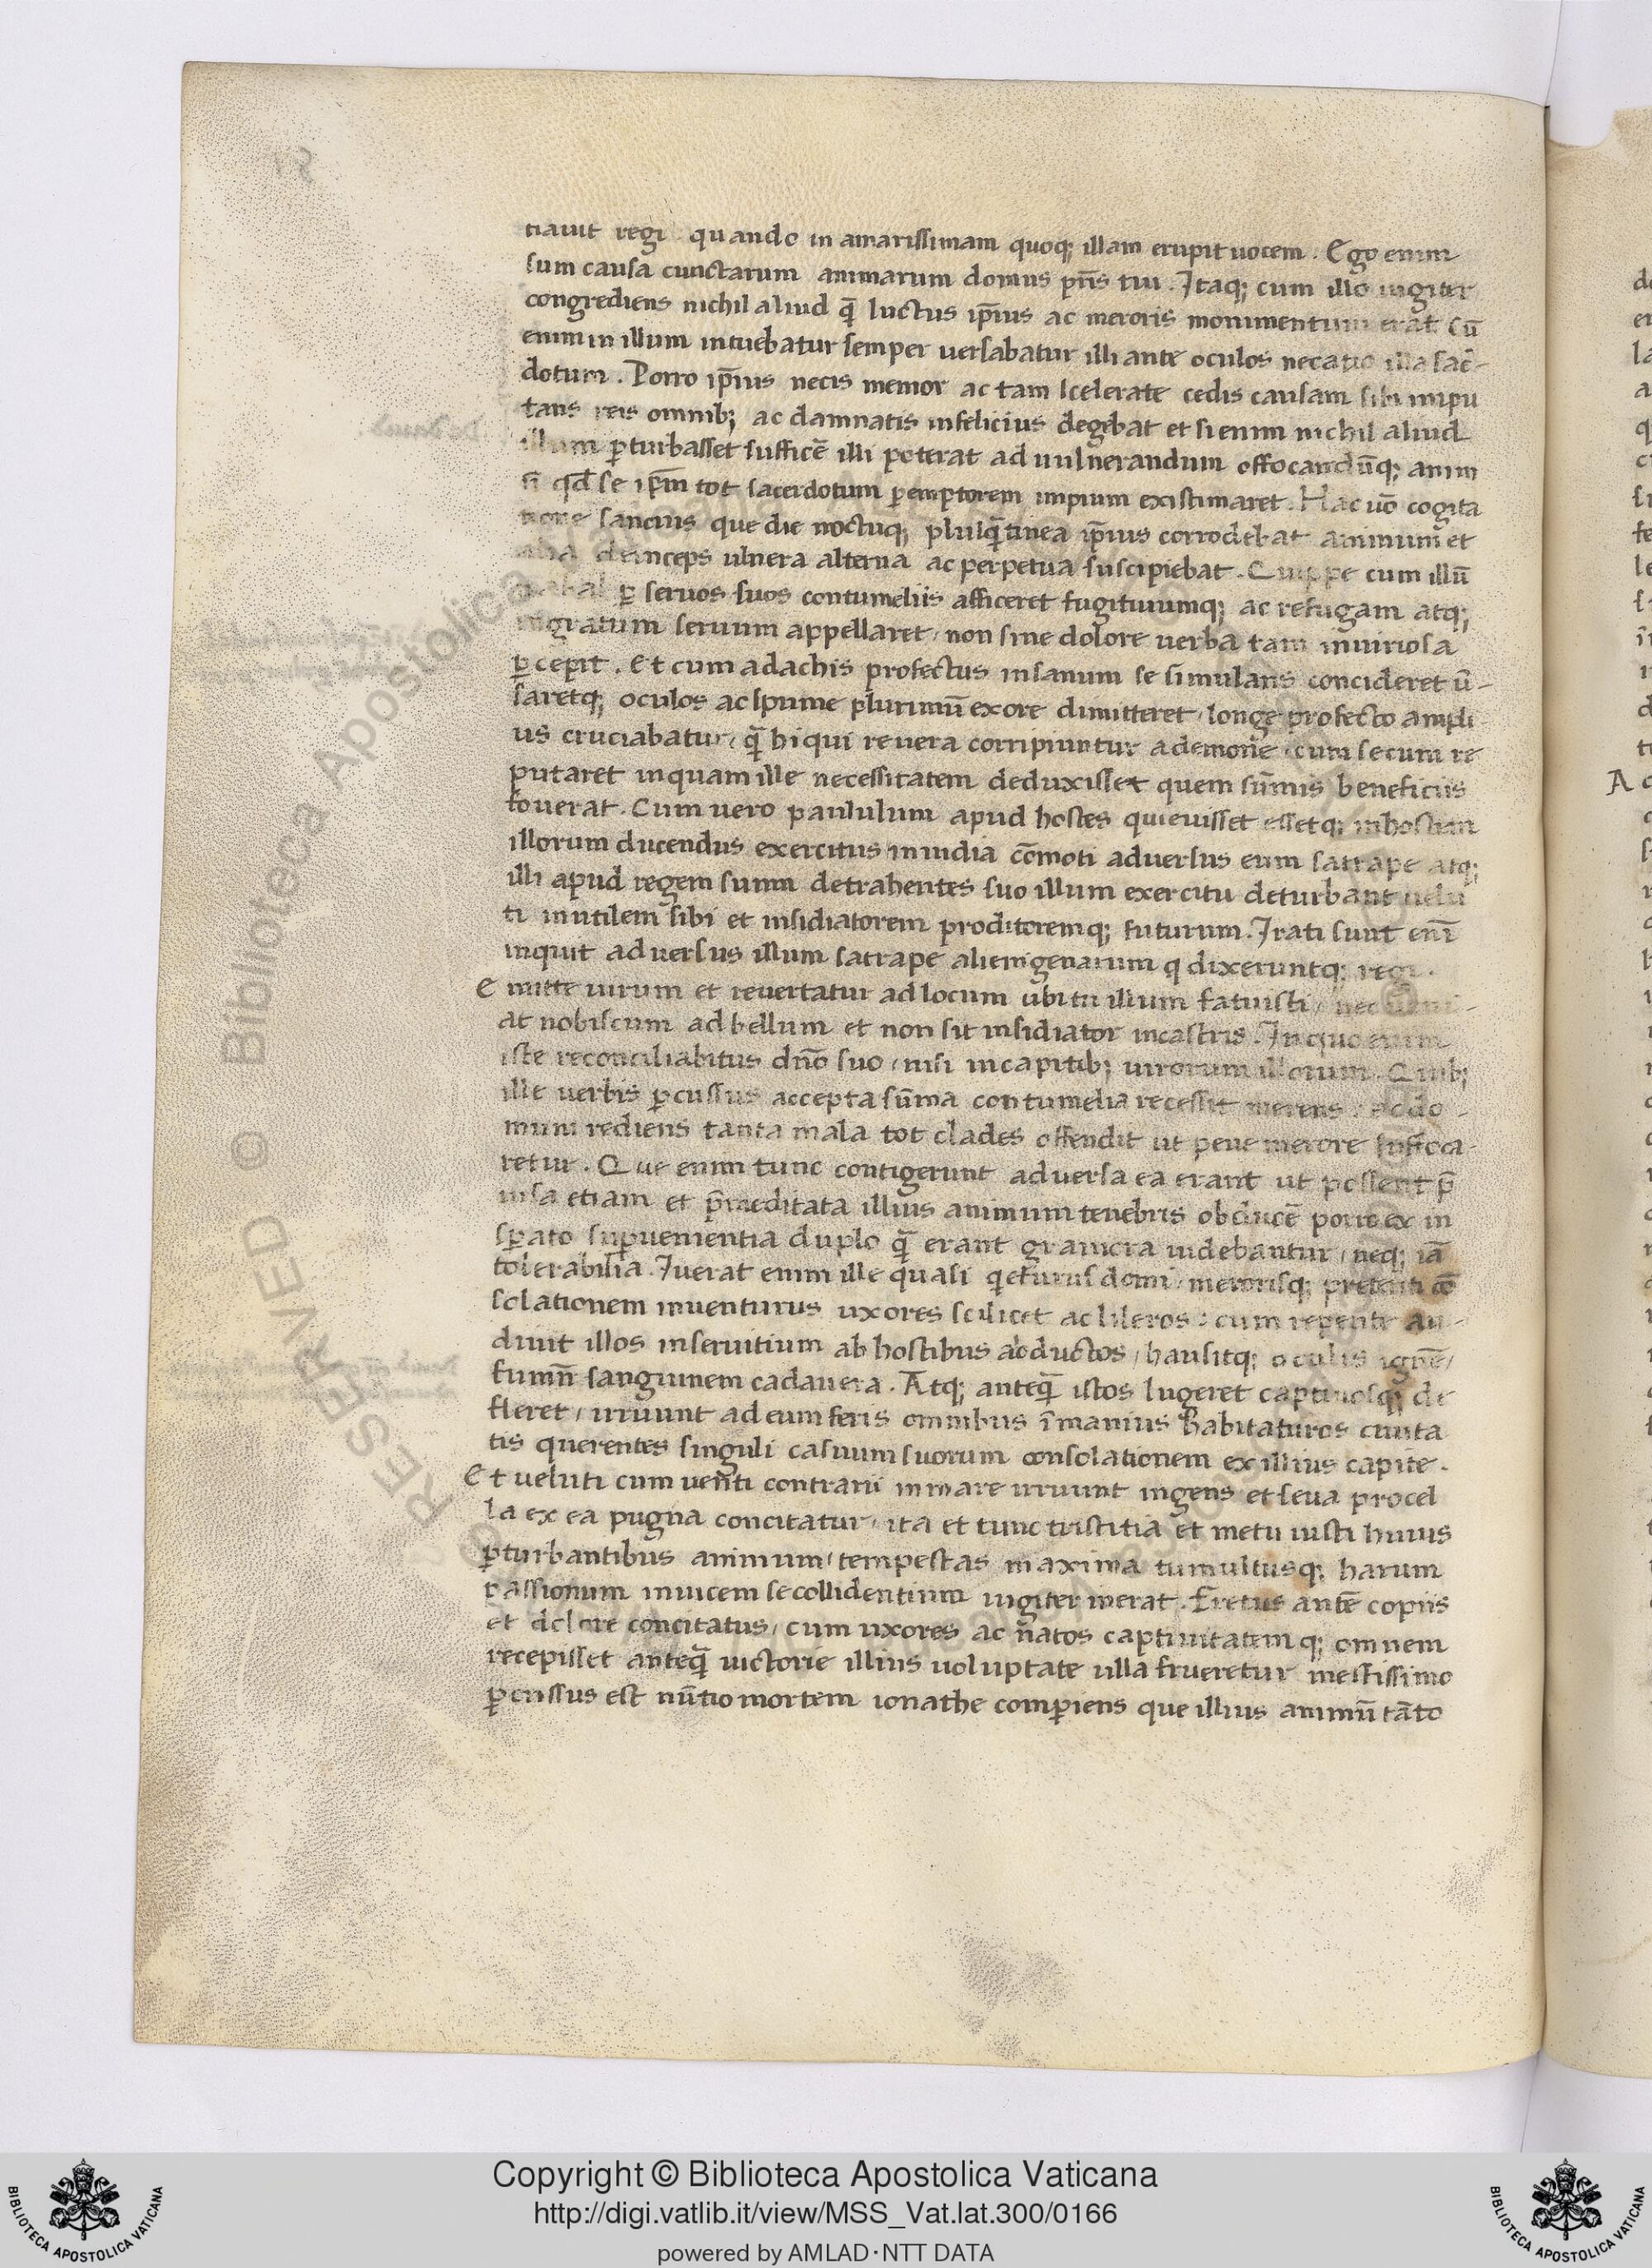 tiauit regi quando in amarissimam quoq; illam erupit uocem. Ego enim
sum causa cunctarum animarum domus pr̄is tui. Itaq; cum illo iugiter
congrediens nichil aliud q̄ luctus ip̄ius ac meroris monimentum erat cū
enim in illum intuebatur semper uersabatur illi ante oculos necatio illa sac̄-
dotum. Porro ip̄ius necis memor ac tam scelerate cedis causam sibi impu
tans reis omnib; ac damnatis infelicius degebat et si enim nichil aliud
illum ꝑturbasset sufficē illi poterat ad uulnerandum offocandūq; anim
qd̄ se ip̄m tot sacerdotum ꝑemptorem impium existimaret. Hac uō cogita
tione saucius que die noctuq; plusq̄ tinea ip̄ius corrodebat animum et
alia deinceps ulnera alterna ac perpetua suscipiebat. Quippe cum illū
nabal ꝑ seruos suos contumeliis afficeret fugitiuumq; ac refugam atq;
ingratum seruum appellaret, non sine dolore uerba tam iniuriosa
ꝑcepit. Et cum ad achis profectus insanum se simulans concideret ū-
saretq; oculos ac spume plurimū ex ore dimitteret, longe profecto ampli
us cruciabatur, q̄ hi qui reuera corripiuntur a demone, cum secum re
putaret in quam ille necessitatem deduxisset quem sūmis beneficiis
fouerat. Cum uero paululum apud hostes quieuisset essetq; in hostian
illorum ducendus exercitus inuidia cōmoti aduersus eum satrape atq;
illi apud regem suum detrahentes suo illum exercitu deturbant uelu
ti inutilem sibi et insidiatorem proditoremq; futurum. Irati sunt enī
inquit aduersus illum satrape alienigenarum q dixeruntq; regi.
Emitte uirum et reuertatur ad locum ubi tu illum statuisti, nec ueni-
at nobiscum ad bellum et non sit insidiator in castris. In quo enim
iste reconciliabitus dn̄o suo, nisi in capitib; uirorum illorum. Quib;
ille uerbis ꝑcussus accepta sūma contumelia recessit merens: ac do-
mum rediens tanta mala tot clades offendit ut pene merore suffoca-
retur. Que enim tunc contigerunt aduersa ea erant ut possent p̄
uisa etiam et p̄meditata illius animum tenebris obducē porro ex in
sꝑato suꝑuenientia duplo q̄ erant grauiora uidebantur, neq; iā
tolerabilia. Iuerat enim ille quasi q̇eturus domi, merorisq; preteriti cō
solationem inuenturus uxores scilicet ac liberos: cum repente au-
diuit illos in seruitium ab hostibus abductos, hausitq; oculis ignē,
fumū sanguinem cadauera. Atq; anteq̄ istos lugeret captiuosq; de
fleret, irruunt ad eum feris omnibus īmanius habitatures ciuita
tis querentes singuli casuum suorum consolationem ex illius capite.
Et ueluti cum uenti contrarii in mare irruunt ingens et seua procel
la ex ea pugna concitatur, ita et tunc tristitia et metu iusti huius
ꝑturbantibus animum, tempestas maxima tumultusq; harum
passionum inuicem se collidentium iugiter inerat. Fretus autē copiis
et dolore concitatus, cum uxores ac natos captiuitatemq; omnem
recepisset anteq̄ uictorie illius uoluptate ulla frueretur mestissimo
ꝑcussus est nūtio mortem ionathe comꝑiens que illius animū tāto
RESERVED © Biblioteca Apostolica Vaticana
Copyright © Biblioteca Apostolica Vaticana
http://digi.vatlib.it/view/MSS_Vat.lat.300/0166
powered by AMLAD·NTT DATA
BIBLIOTECA APOSTOLICA VATICANA
BIBLIOTECA APOSTOLICA VATICANA